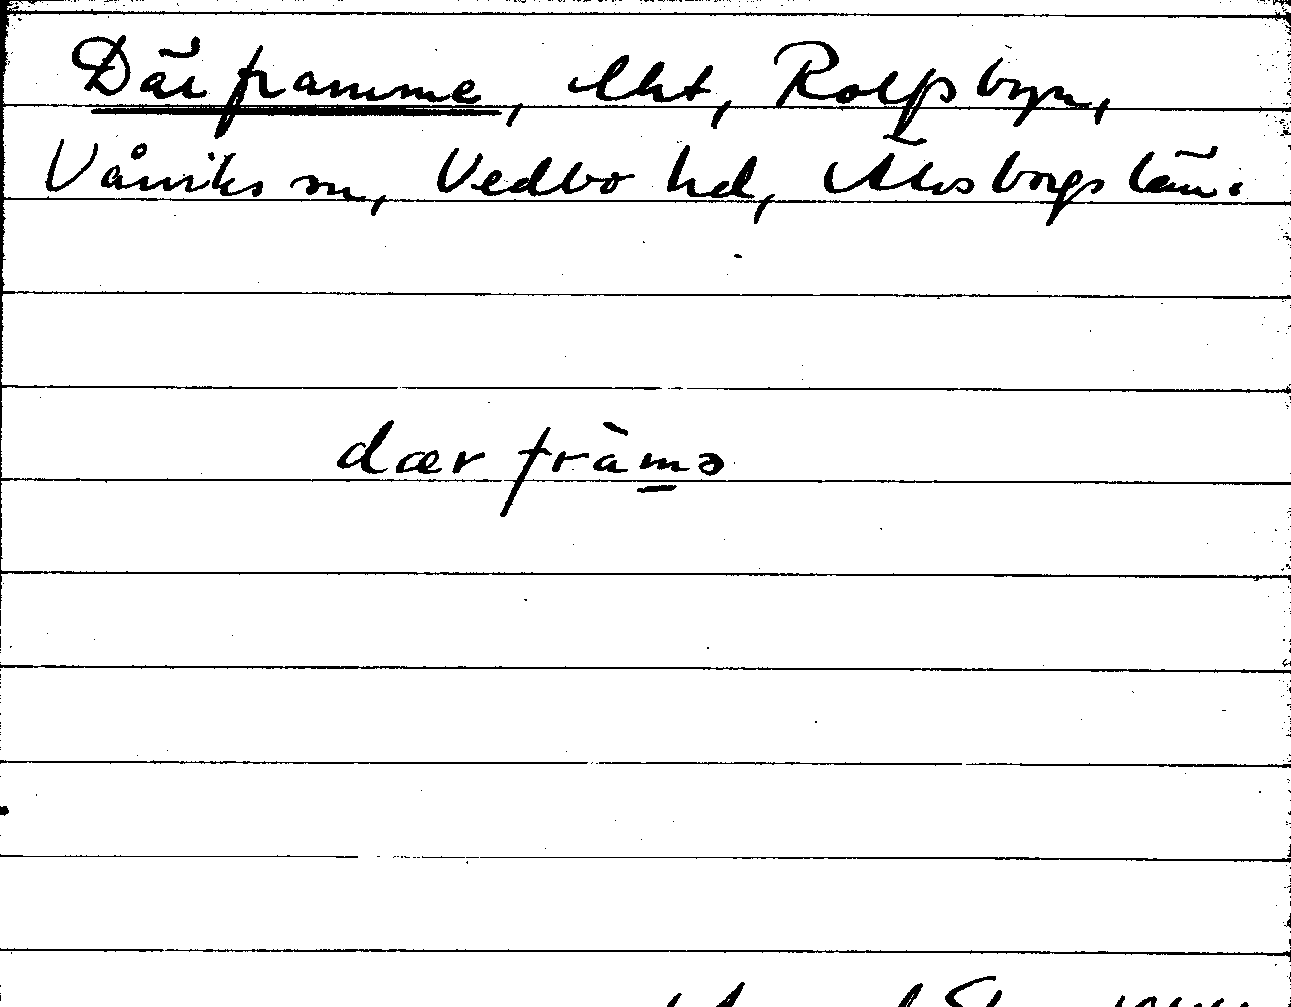 Därframme, lht, Rolfsbyn,
Vårviks sn, Vedbo hd, Älvsborgs län.
dær fràmə